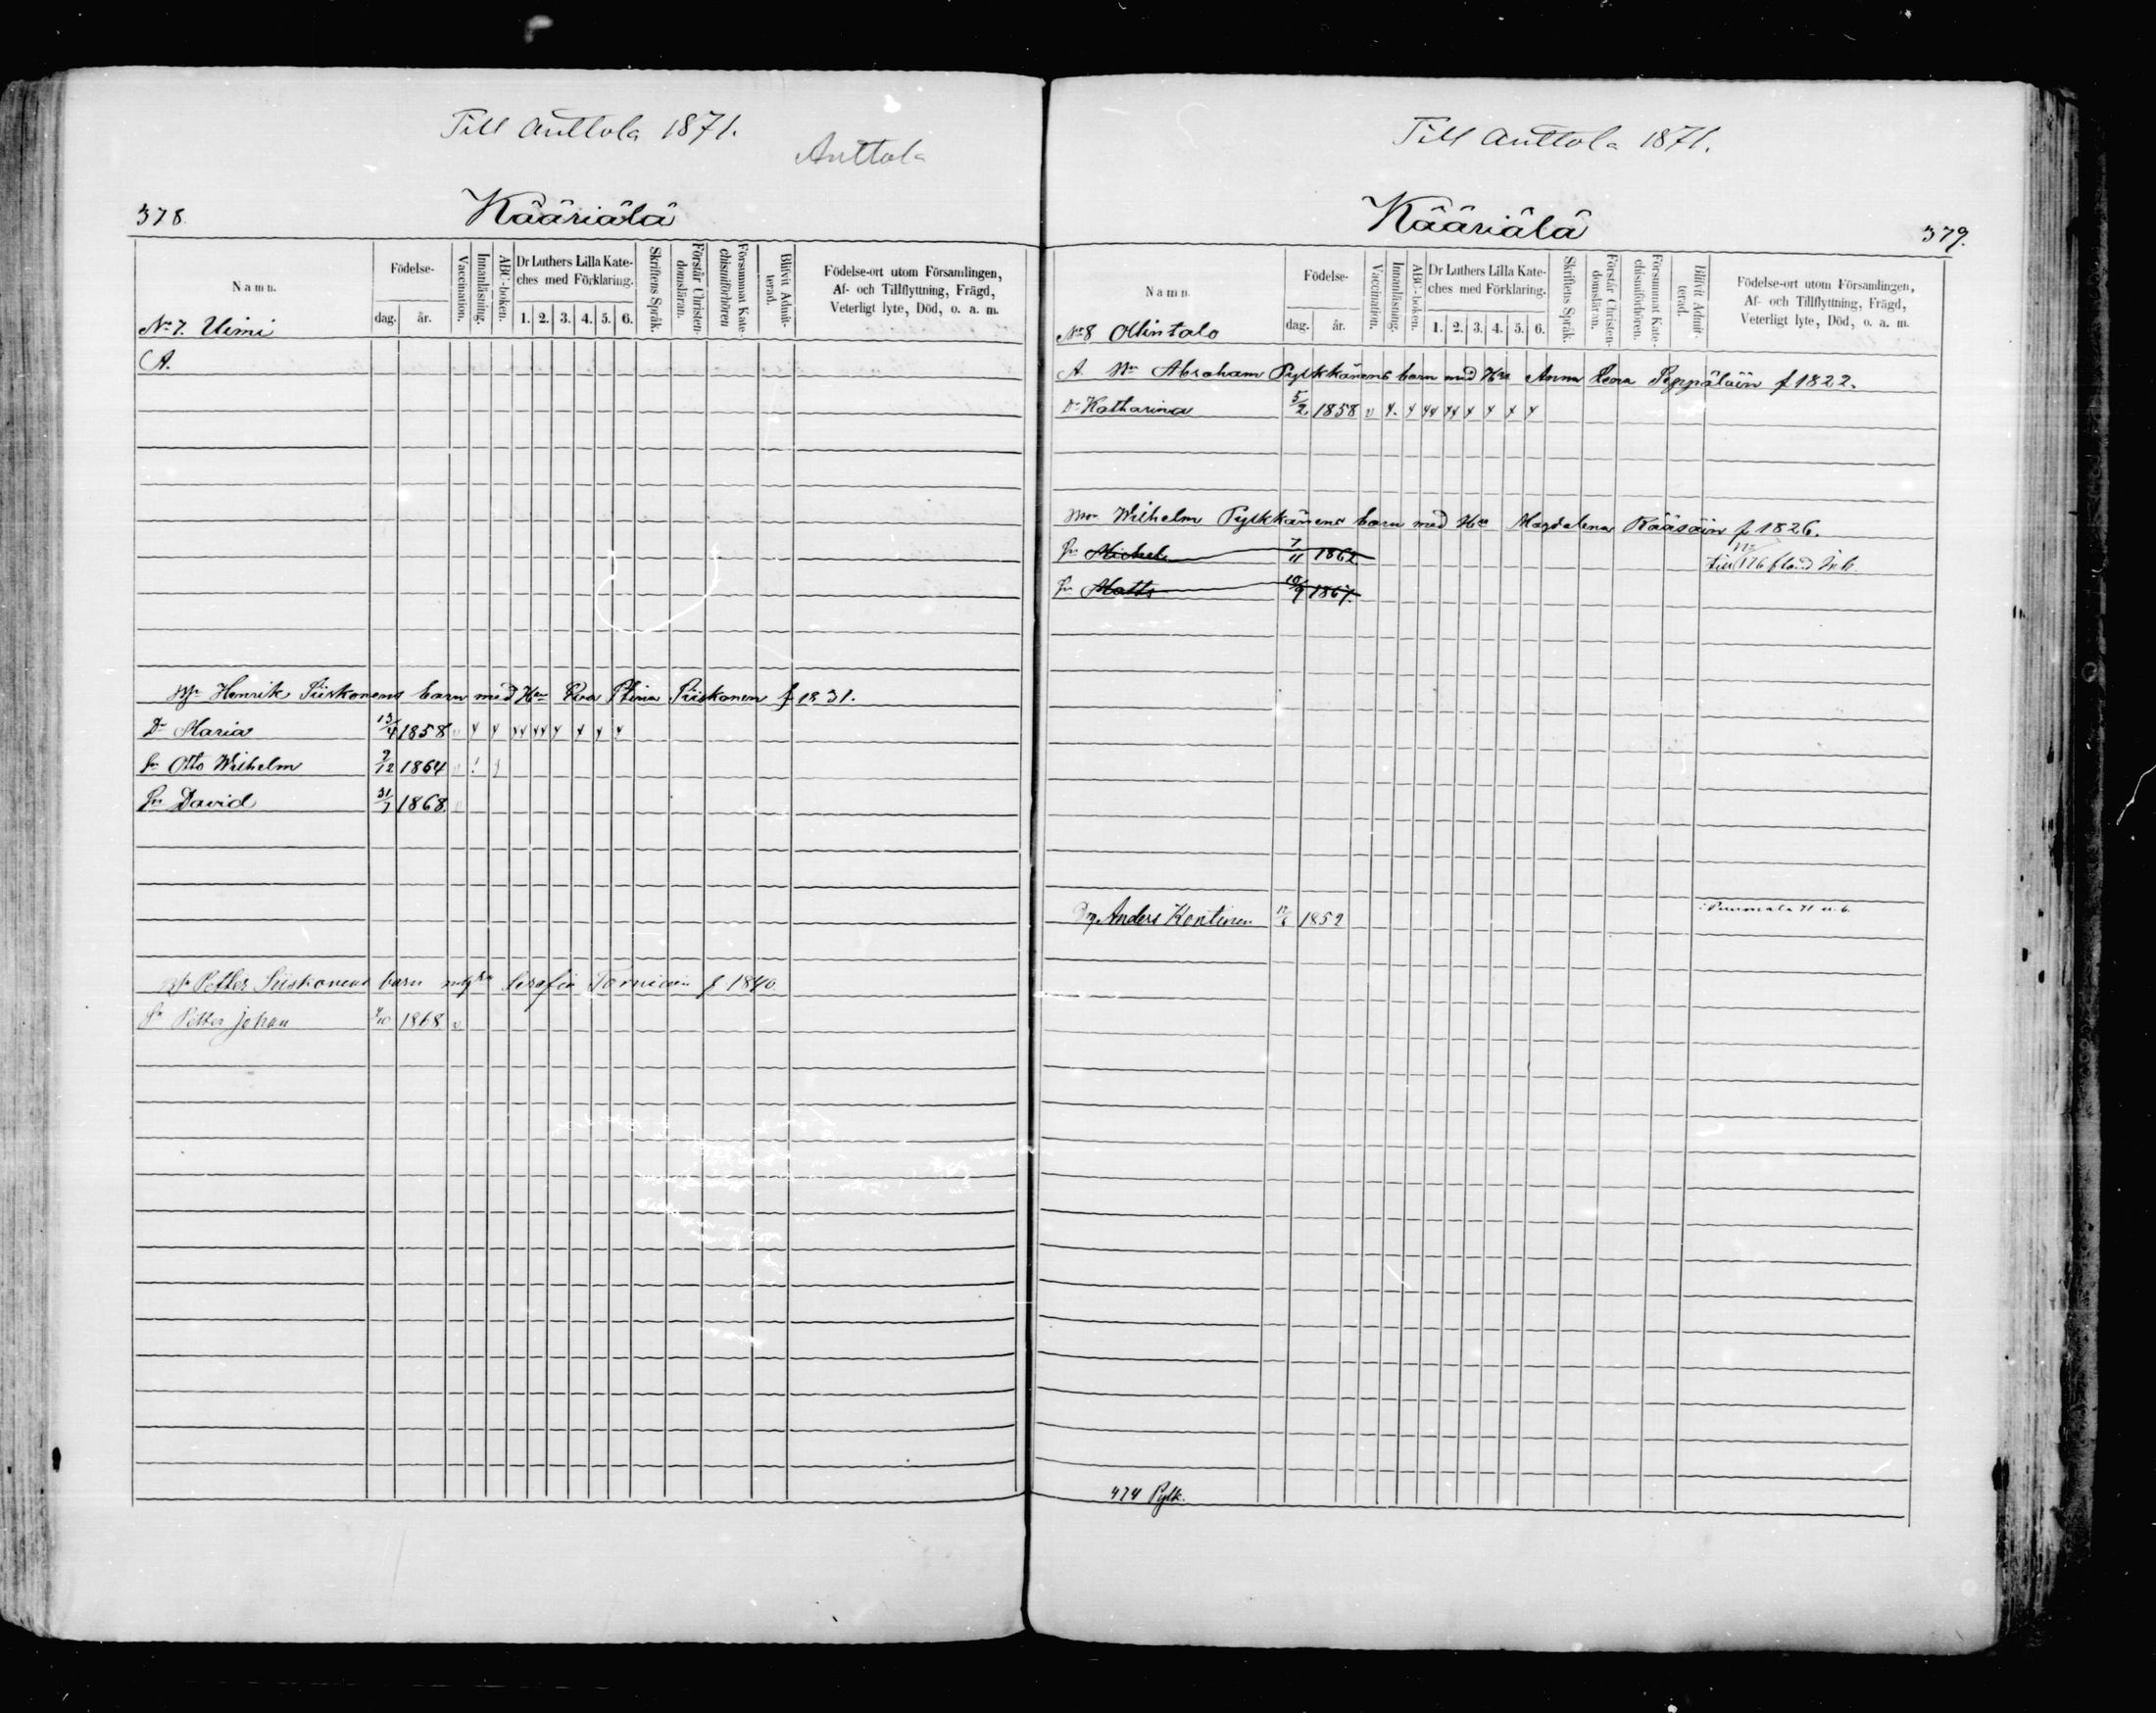 Till Anttola 1871.
Anttola
378.
Kääriälä
Namn.
Födelse-
dag.
år.
Vaccination.
Innanläsning.
ABC-boken.
Dr Luthers Lilla Kate-
ches med Förklaring.
1. 2. 3. 4. 5. 6.
Skriftens Språk.
Förstår Christen-
domsläran.
Försummat Kate-
chismiförhören
Blifvit Admit-
terad.
Födelse-ort utom Församlingen,
Af- och Tillflyttning, Frägd,
Veterligt lyte, Död, o. a. m.
No 7. Uimi
A.
Henrik Siiskonens barn med Hu Eva Stina Siiskonen f 1831.
Dr Maria 13/4 1858 v
Sn Otto Wilhelm 2/12 1864
Sn David 31/7 1868
Petter Siiskonens barn Serafia f 1840.
Sn Petter Johan 1868 v
Till Anttola 1871.
Kääriälä
379.
Namn
Födelse-
dag.
år.
Vaccination.
Innanläsning.
ABC-boken.
Dr Luthers Lilla Kate-
ches med Förklaring.
1. 2. 3. 4. 5. 6.
Skriftens Språk.
Förstår Christen-
domsläran.
Försummat Kate-
chismiförhören.
Blifvit Admit-
terad.
Födelse-ort utom Församlingen,
Af- och Tillflyttning, Frägd,
Veterligt lyte, Död, o. a. m.
No 8 Ollintalo
A. Abraham Pylkkänens barn med Hu Anna Lena Seppäläin f 1822.
Dr Katharina 5/2 1858 v
Wilhelm Pylkkänens barn med Hu Magdalena Rääsäin f 1826.
Sn Michel 7/11 1862
till 176
Sn Matts 10/9 1867.
Anders Kontinen 1852
Puumala 71
474 Pylk.